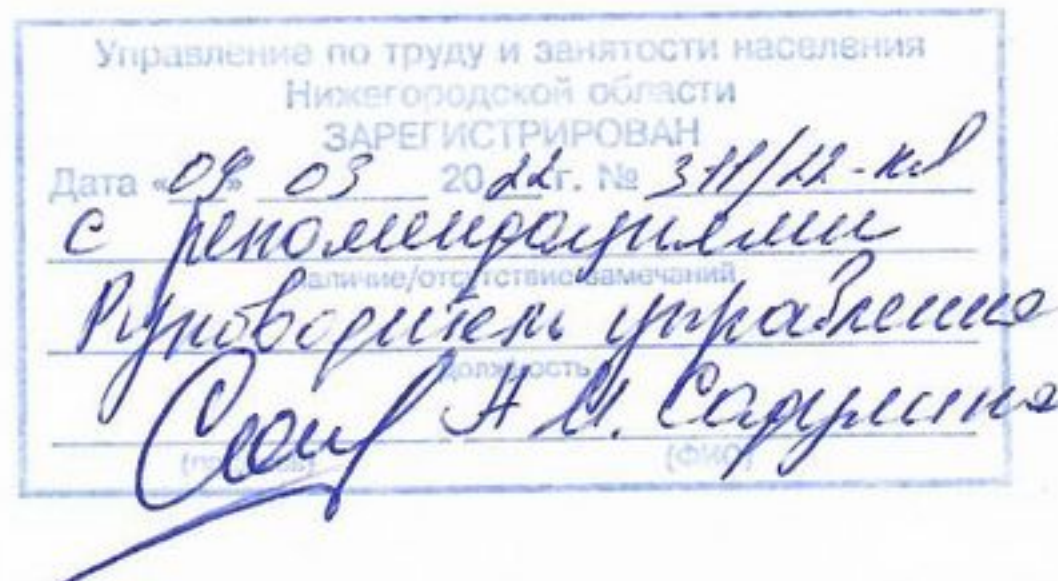 Управление по труду и занятости населения
Нижегородской области
ЗАРЕГИСТРИРОВАН
Дата «09» 03 2022г. № 311/22-кд
с рекомендациями
наличие/отсутствие замечаний
Руководитель управления
должность
А.И. Садулина
(подпись) (ФИО)